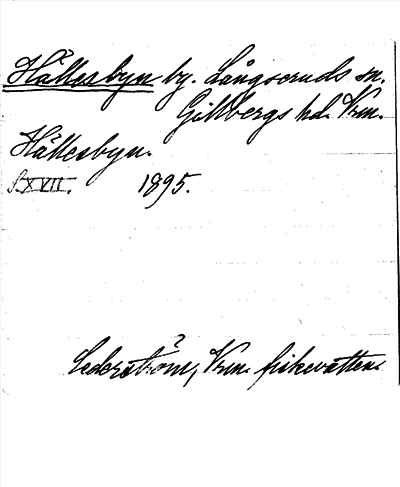 Hällesbyn by. Långseruds sn.
Gillbergs hd. Vrm.
Hällesbyn.
S. XVII. 1895.
Cederström, Vrm. fiskevatten.